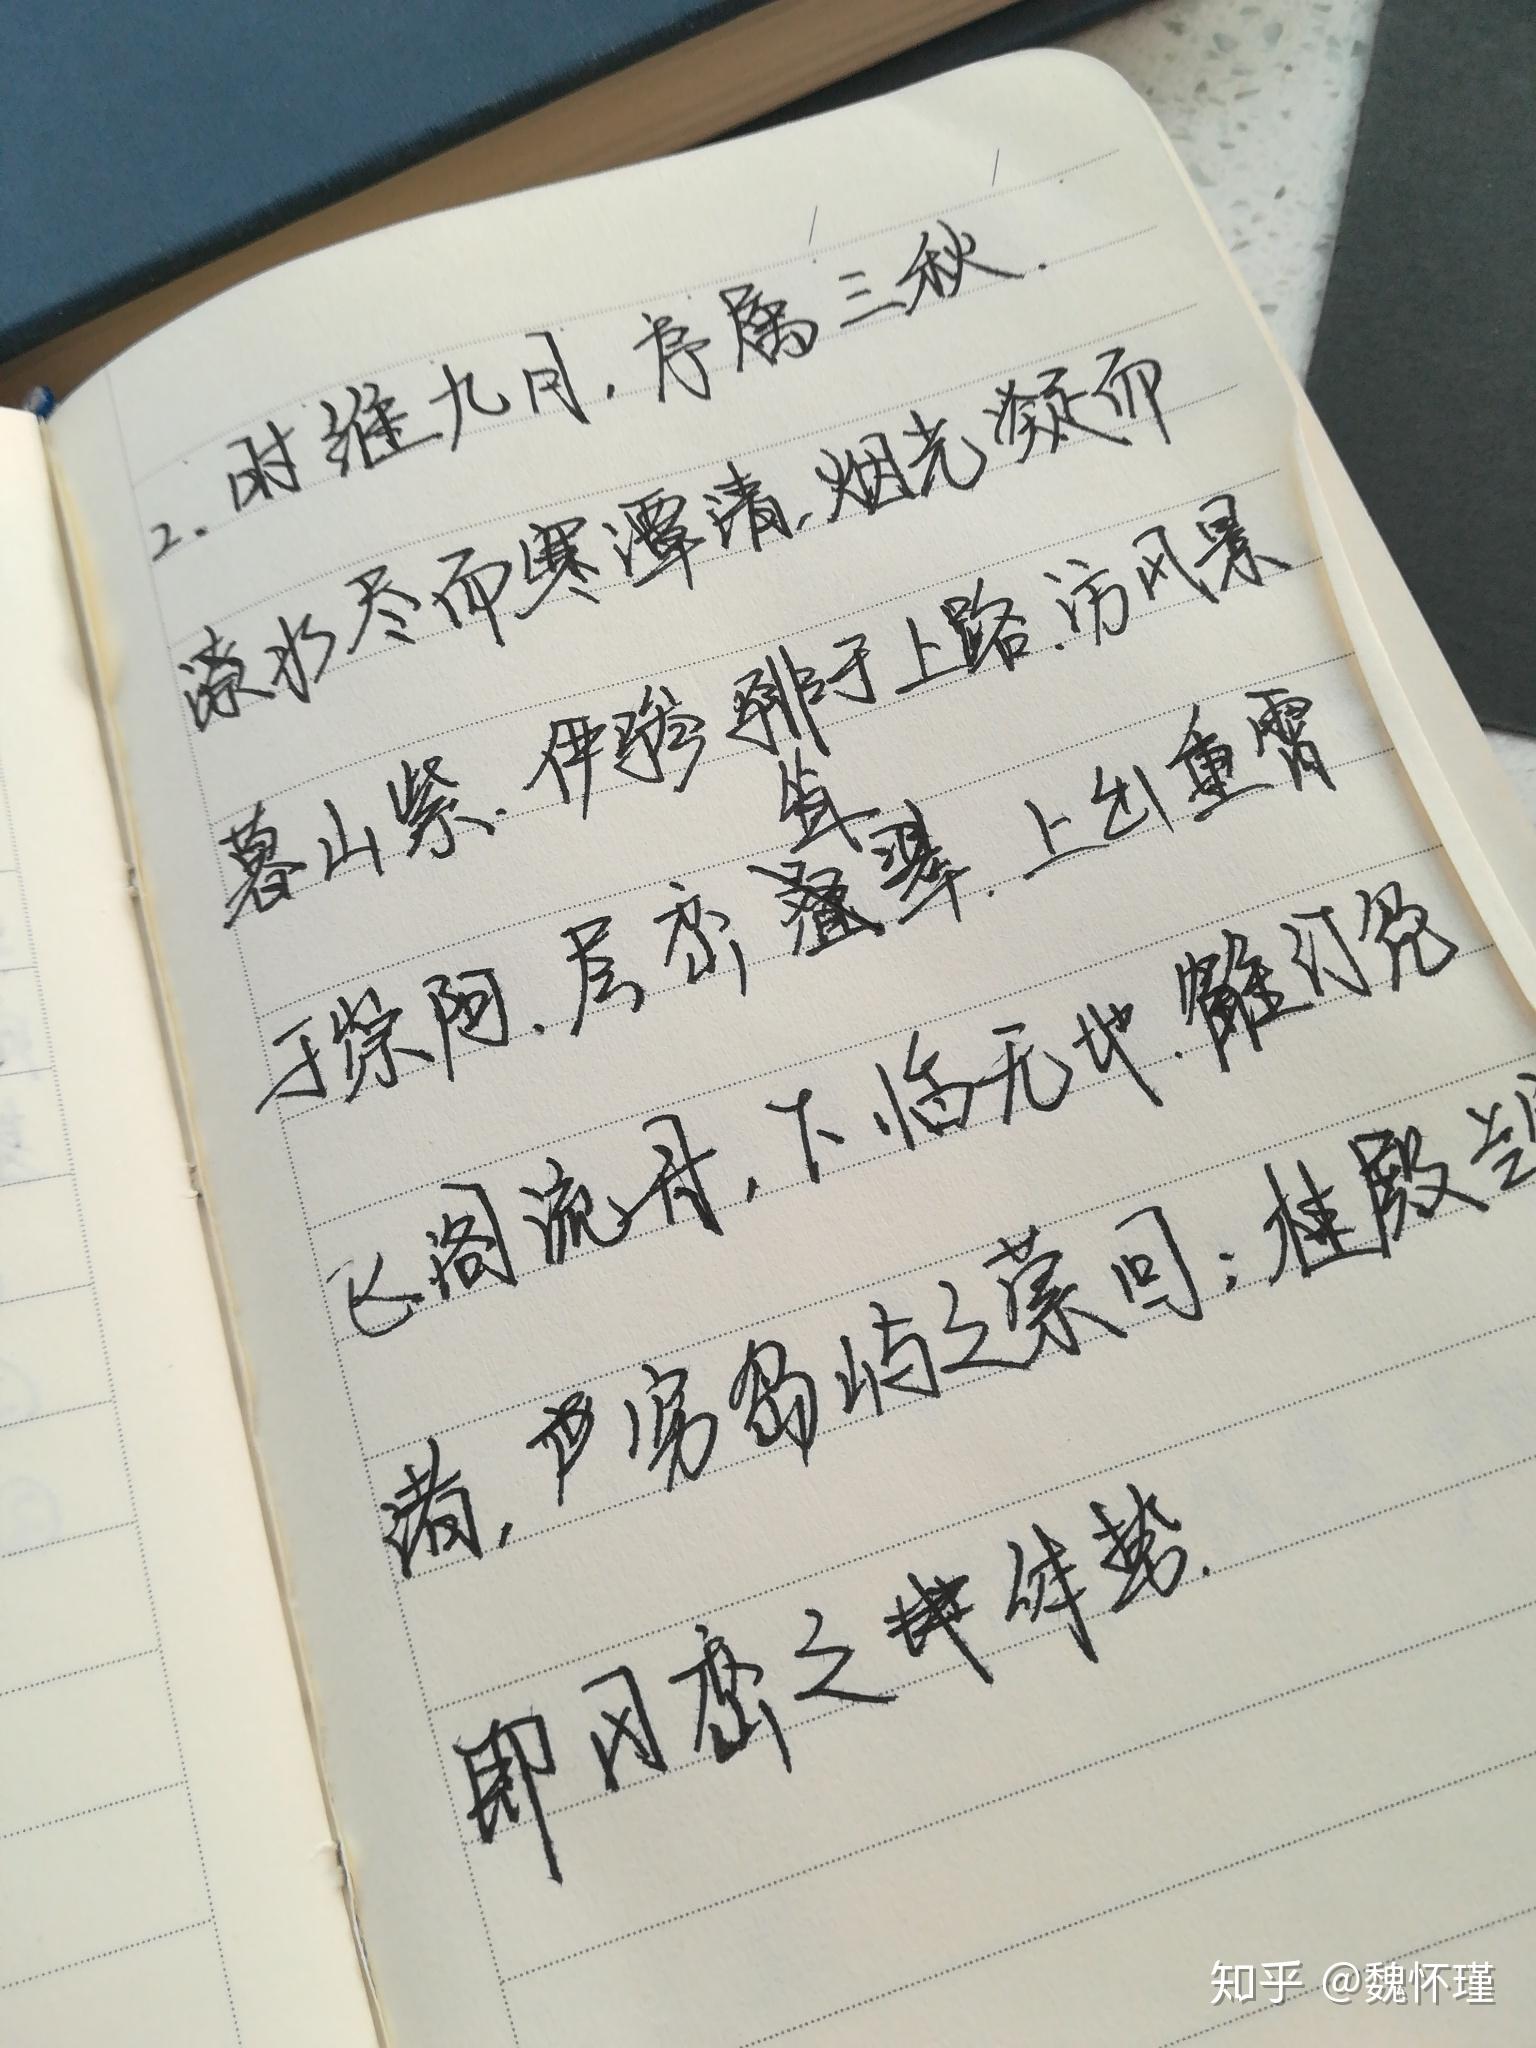 2.时维九月,序属三秋.
潦水尽而寒潭清.烟光凝而
暮山紫.俨骖騑于上路.访风景
于崇阿.层峦耸翠.上出重霄
飞阁流丹,下临无地.鹤汀凫
渚,穷岛屿之萦回;桂殿兰
即冈峦之体势.
知乎 @魏怀瑾